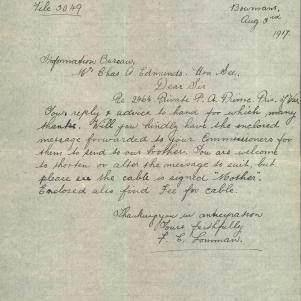 File 3049
Bowmans,
Aug 3rd
1917.
Information Bureau,
Mr Chas. A Edmunds. Hon Sec.
Dear Sir
Re 2464. Private P. A. Prisoner of War
Your reply & advice to hand for which many
thanks. Will you kindly have the enclosed
message forwarded to your Commissioners for
them to send to our brother. You are welcome
to shorten or alter the message to suit, but
please see the cable is signed "Mother".
Enclosed also find Fee for cable.
Thanking you in anticipation
Yours faithfully